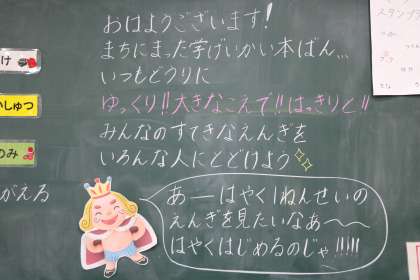 おはようございます!
まちにまった学げいかい本ばん...
いつもどうりに
ゆっくり!!大きなこえで!!はっきりと!!
みんなのすてきなえんぎを
いろんな人にとどけよう
あーはやく1ねんせいの
えんぎを見たいなあ〜〜
はやくはじめるのじゃ!!!!!
け
しゅつ
のみ
がえる
スタンプラ